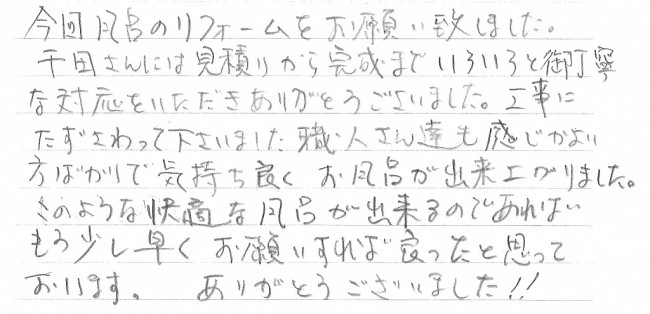 今回風呂のリフォームをお願い致しました。
千田さんには見積りから完成までいろいろと御丁寧
な対応をいただきありがとうございました。工事に
たずさわって下さいました職人さん達も感じがよい
方ばかりで気持ち良くお風呂が出来上がりました。
このような快適な風呂が出来るのであれば
もう少し早くお願いすれば良かったと思って
おります。 ありがとうございました!!